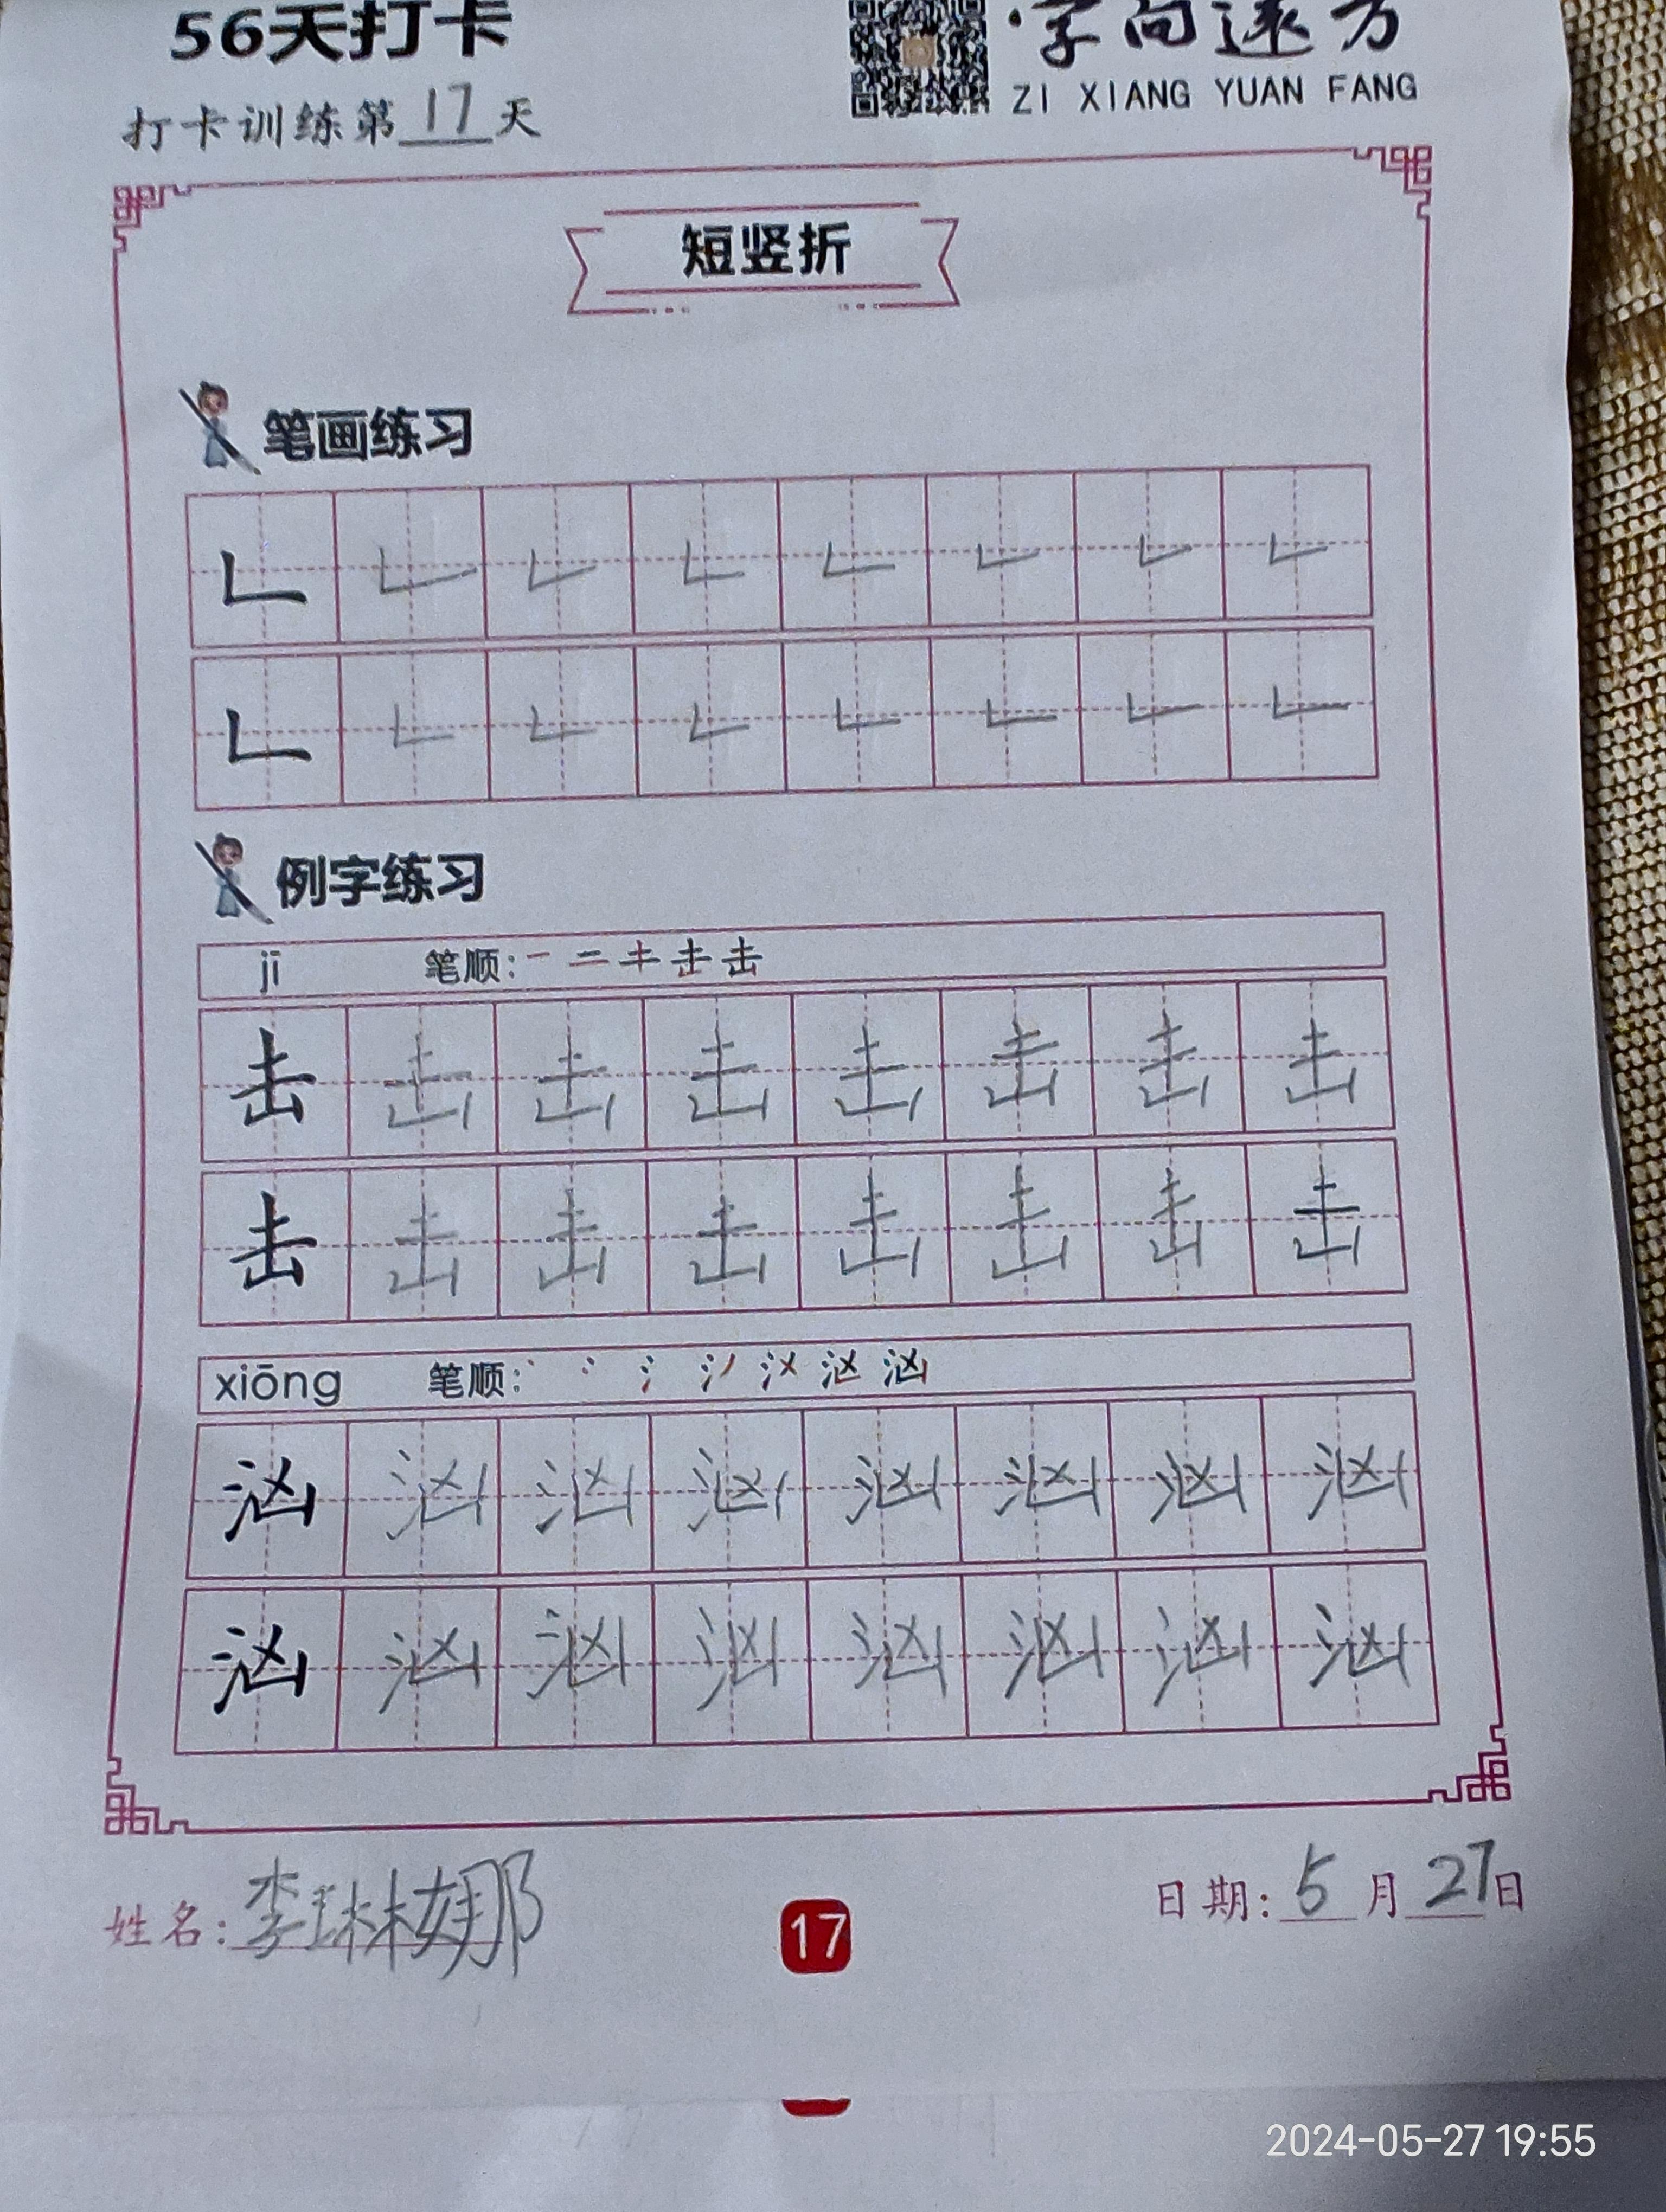 56天打卡
·字向远方
ZI XIANG YUAN FANG
打卡训练第17天
短竖折
笔画练习
𠃊 𠃊 𠃊 𠃊 𠃊 𠃊 𠃊 𠃊
𠃊 𠃊 𠃊 𠃊 𠃊 𠃊 𠃊 𠃊
例字练习
jī 笔顺: 一 二 キ 击 击
击 击 击 击 击 击 击 击
击 击 击 击 击 击 击 击
xiōng 笔顺: 汹
汹 汹 汹 汹 汹 汹 汹 汹
汹 汹 汹 汹 汹 汹 汹 汹
姓名: 李琳娜
17
日期: 5月27日
2024-05-27 19:55